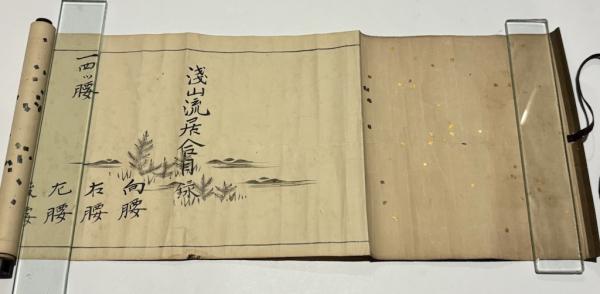 淺山流居合目録
一四ッ腰
向腰
右腰
左腰
腰